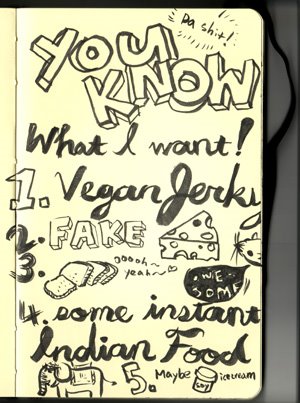 Da shit!
YOU
KNOW
What I want!
1. Vegan Jerks
2. FAKE
3. ooooh~
yeah~
AWE
SOME
4. some instant
Indian Food
5. Maybe soy icecream